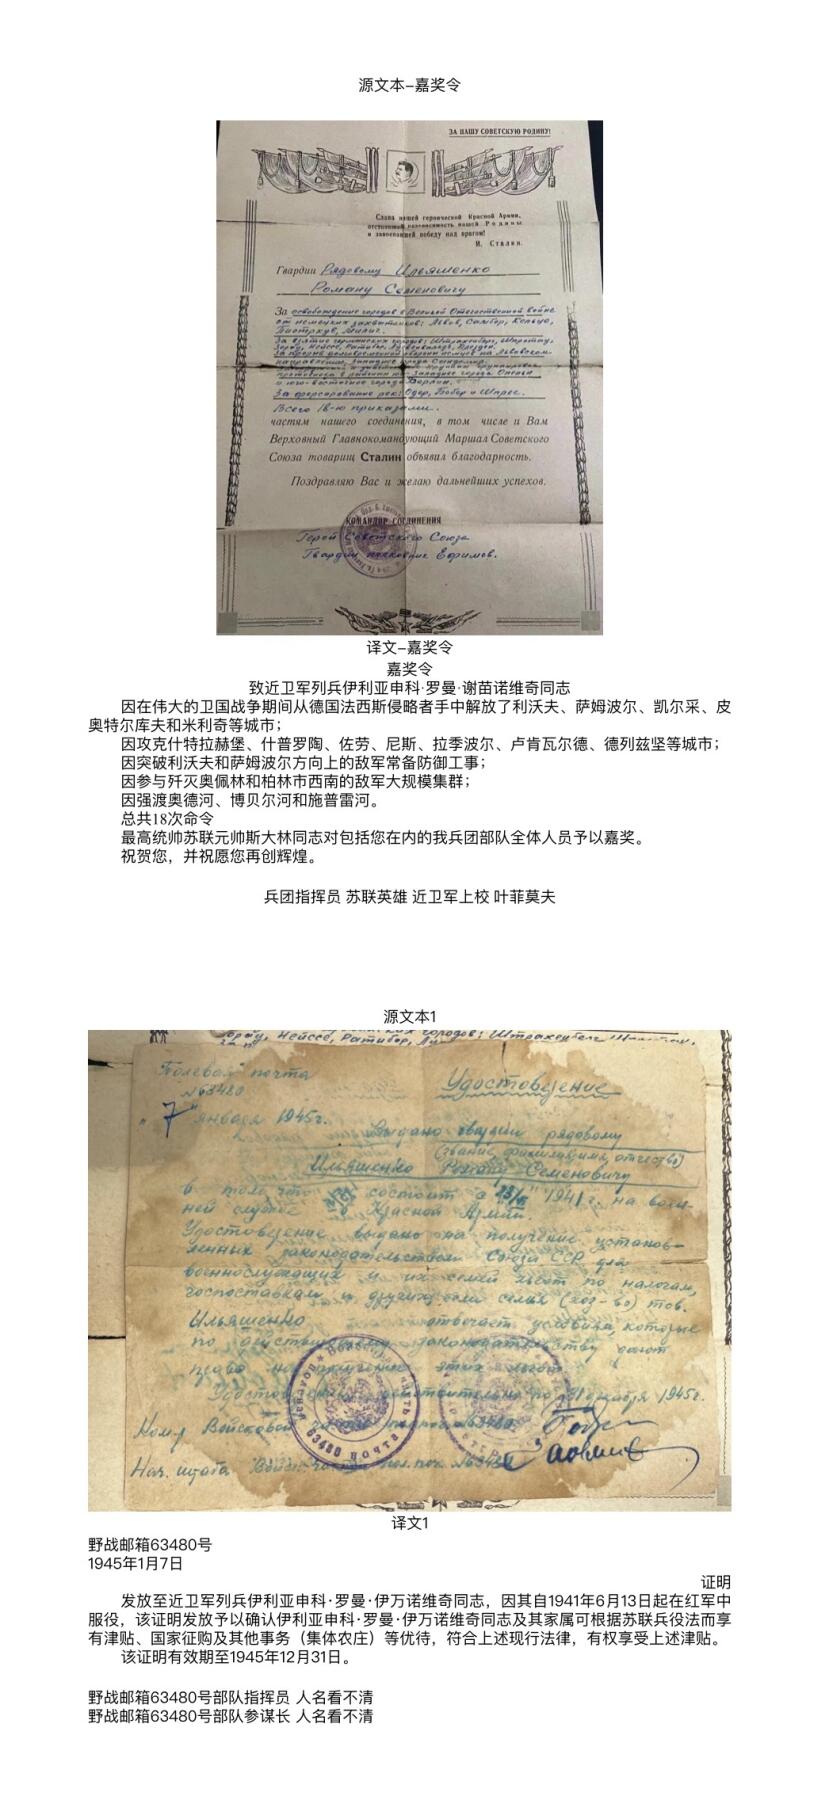 源文本-嘉奖令
ЗА НАШУ СОВЕТСКУЮ РОДИНУ!
Слава нашей героической Красной Армии,
отстоявшей независимость нашей Родины
и завоевавшей победу над врагом!
И. Сталин.
Гвардии Рядовому Ильяшенко
Роману Семеновичу
За освобождение городов в Великой Отечественной войне
от немецких захватчиков: Львов, Самбор, Кельце,
Пиотркув, Милич.
За взятие германских городов:
За прорыв долговременной обороны немцев на Львовском
направлении, западнее города
и юго-восточнее города Берлин.
За форсирование рек: Одер, Бобер и Шпрее.
Всего 18-ю приказами.
частям нашего соединения, в том числе и Вам
Верховный Главнокомандующий Маршал Советского
Союза товарищ Сталин объявил благодарность.
Поздравляю Вас и желаю дальнейших успехов.
КОМАНДИР СОЕДИНЕНИЯ
Герой Советского Союза
Гвардии полковник Ефимов.
译文-嘉奖令
嘉奖令
致近卫军列兵伊利亚申科·罗曼·谢苗诺维奇同志
因在伟大的卫国战争期间从德国法西斯侵略者手中解放了利沃夫、萨姆波尔、凯尔采、皮
奥特尔库夫和米利奇等城市；
因攻克什特拉赫堡、什普罗陶、佐劳、尼斯、拉季波尔、卢肯瓦尔德、德列兹坚等城市；
因突破利沃夫和萨姆波尔方向上的敌军常备防御工事；
因参与歼灭奥佩林和柏林市西南的敌军大规模集群；
因强渡奥德河、博贝尔河和施普雷河。
总共18次命令
最高统帅苏联元帅斯大林同志对包括您在内的我兵团部队全体人员予以嘉奖。
祝贺您，并祝愿您再创辉煌。
兵团指挥员 苏联英雄 近卫军上校 叶菲莫夫
源文本1
Полевая почта
№63480
"7" января 1945г.
Удостоверение
Выдано гвардии рядовому
(звание, фамилия, имя, отчество)
Ильяшенко Роману Семеновичу
в том, что состоит с 1941г. на воен-
ной службе в Красной Армии.
Удостоверение выдано на получение установ-
ленных законодательством Союза ССР для
военнослужащих и их семей льгот по налогам,
госпоставкам и другим, если семья (хоз-во) тов.
Ильяшенко отвечает условиям, которые
по действующему законодательству дают
право на получение этих льгот.
Удостоверение действительно по 31 декабря 1945г.
Ком-р Войсковой части №63480
Нач. штаба Войск. части пол. поч. №63480
63480 ПОЧТА
译文1
野战邮箱63480号
1945年1月7日
证明
发放至近卫军列兵伊利亚申科·罗曼·伊万诺维奇同志，因其自1941年6月13日起在红军中
服役，该证明发放予以确认伊利亚申科·罗曼·伊万诺维奇同志及其家属可根据苏联兵役法而享
有津贴、国家征购及其他事务（集体农庄）等优待，符合上述现行法律，有权享受上述津贴。
该证明有效期至1945年12月31日。
野战邮箱63480号部队指挥员 人名看不清
野战邮箱63480号部队参谋长 人名看不清